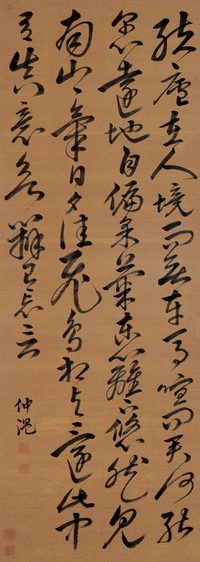 結廬在人境而無車馬喧問君何能
爾心遠地自偏采菊東籬下悠然見
南山々氣日夕佳飛鳥相与還此中
有真意欲辯已忘言
仲混